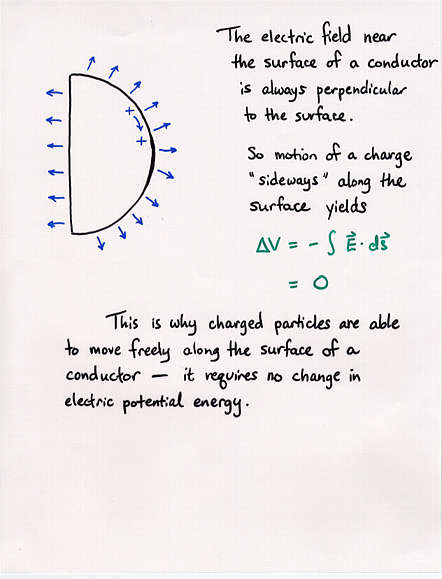 The electric field near
the surface of a conductor
is always perpendicular
to the surface.
So motion of a charge
"sideways" along the
surface yields
ΔV = - ∫ E⃗ · ds⃗
= 0
+
+
This is why charged particles are able
to move freely along the surface of a
conductor — it requires no change in
electric potential energy.